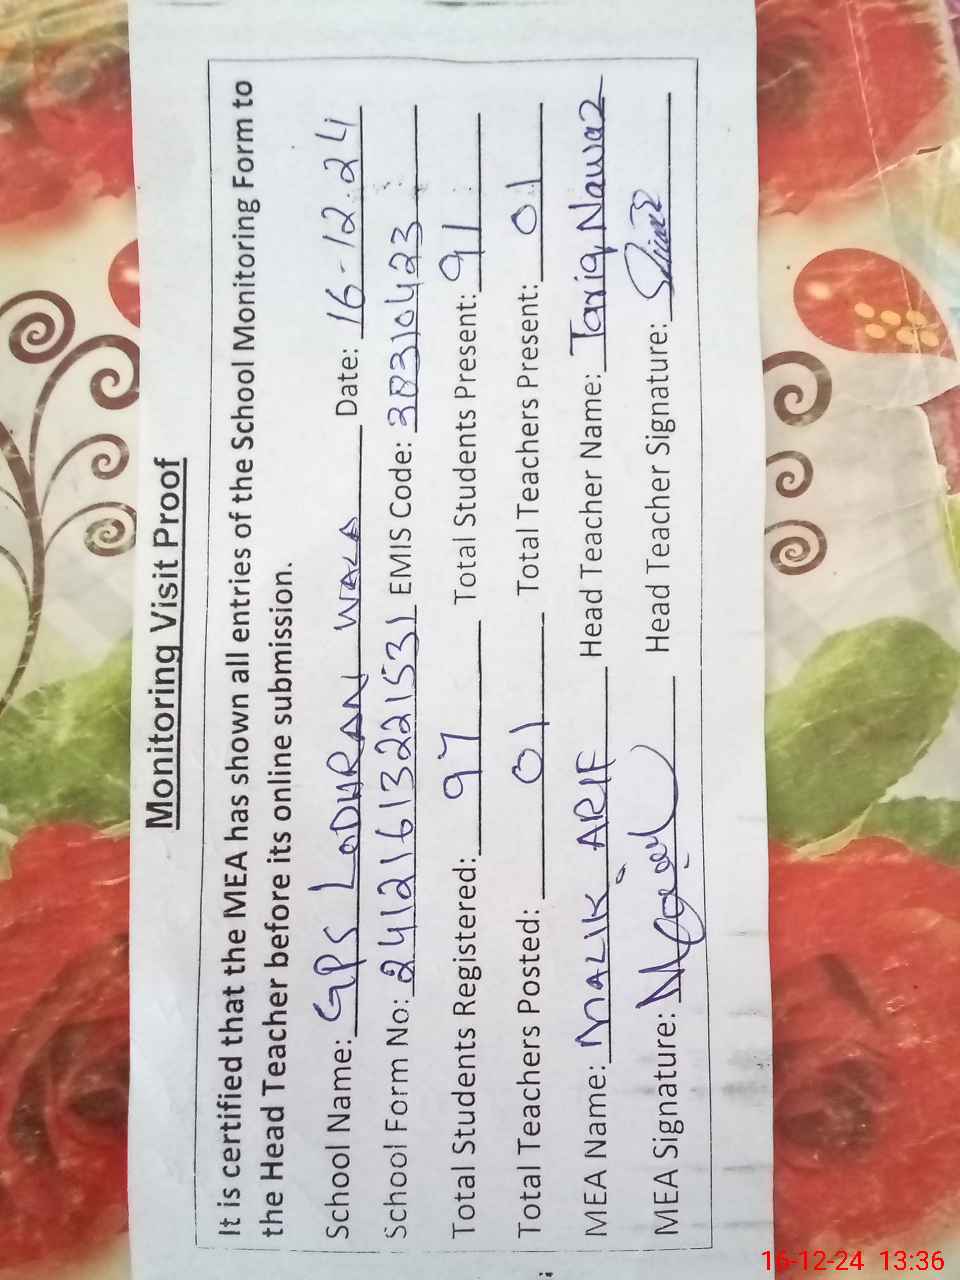 Monitoring Visit Proof
It is certified that the MEA has shown all entries of the School Monitoring Form to
the Head Teacher before its online submission.
School Name: GPS LODHRAN WALA Date: 16-12.24
School Form No: 24121613221531 EMIS Code: 38310423
Total Students Registered: 97 Total Students Present: 91
Total Teachers Posted: 01 Total Teachers Present: 01
MEA Name: MALIK ARIF Head Teacher Name: Tariq Nawaz
MEA Signature: Head Teacher Signature:
16-12-24 13:36